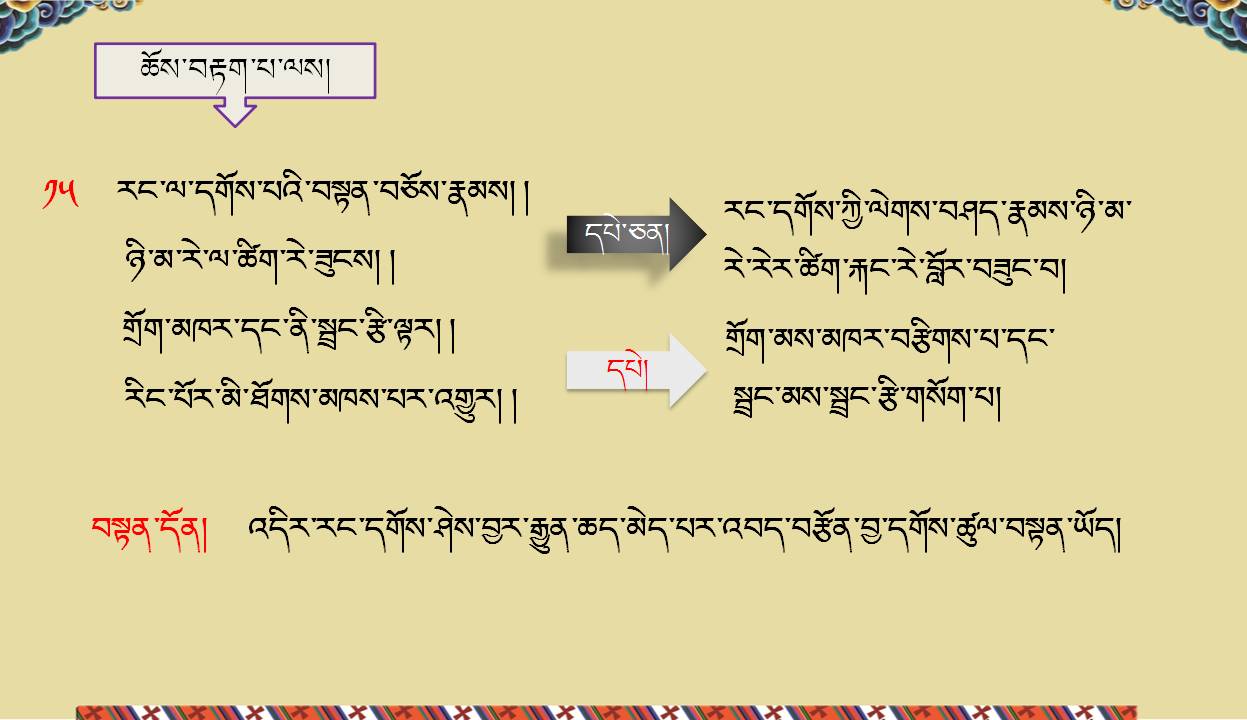 ཆོས་བརྟག་པ་ལས།
༡༥ རང་ལ་དགོས་པའི་བསྟན་བཅོས་རྣམས། །
ཉི་མ་རེ་ལ་ཚིག་རེ་ཟུངས། །
གྲོག་མཁར་དང་ནི་སྦྲང་རྩི་ལྟར། །
རིང་པོར་མི་ཐོགས་མཁས་པར་འགྱུར། །
དཔེ་ཅན།
རང་དགོས་ཀྱི་ལེགས་བཤད་རྣམས་ཉི་མ་
རེ་རེར་ཚིག་རྐང་རེ་བློར་བཟུང་བ།
དཔེ།
གྲོག་མས་མཁར་བརྩིགས་པ་དང་
སྦྲང་མས་སྦྲང་རྩི་གསོག་པ།
བསྟན་དོན། འདིར་རང་དགོས་ཤེས་བྱར་རྒྱུན་ཆད་མེད་པར་འབད་བརྩོན་བྱ་དགོས་ཚུལ་བསྟན་ཡོད།